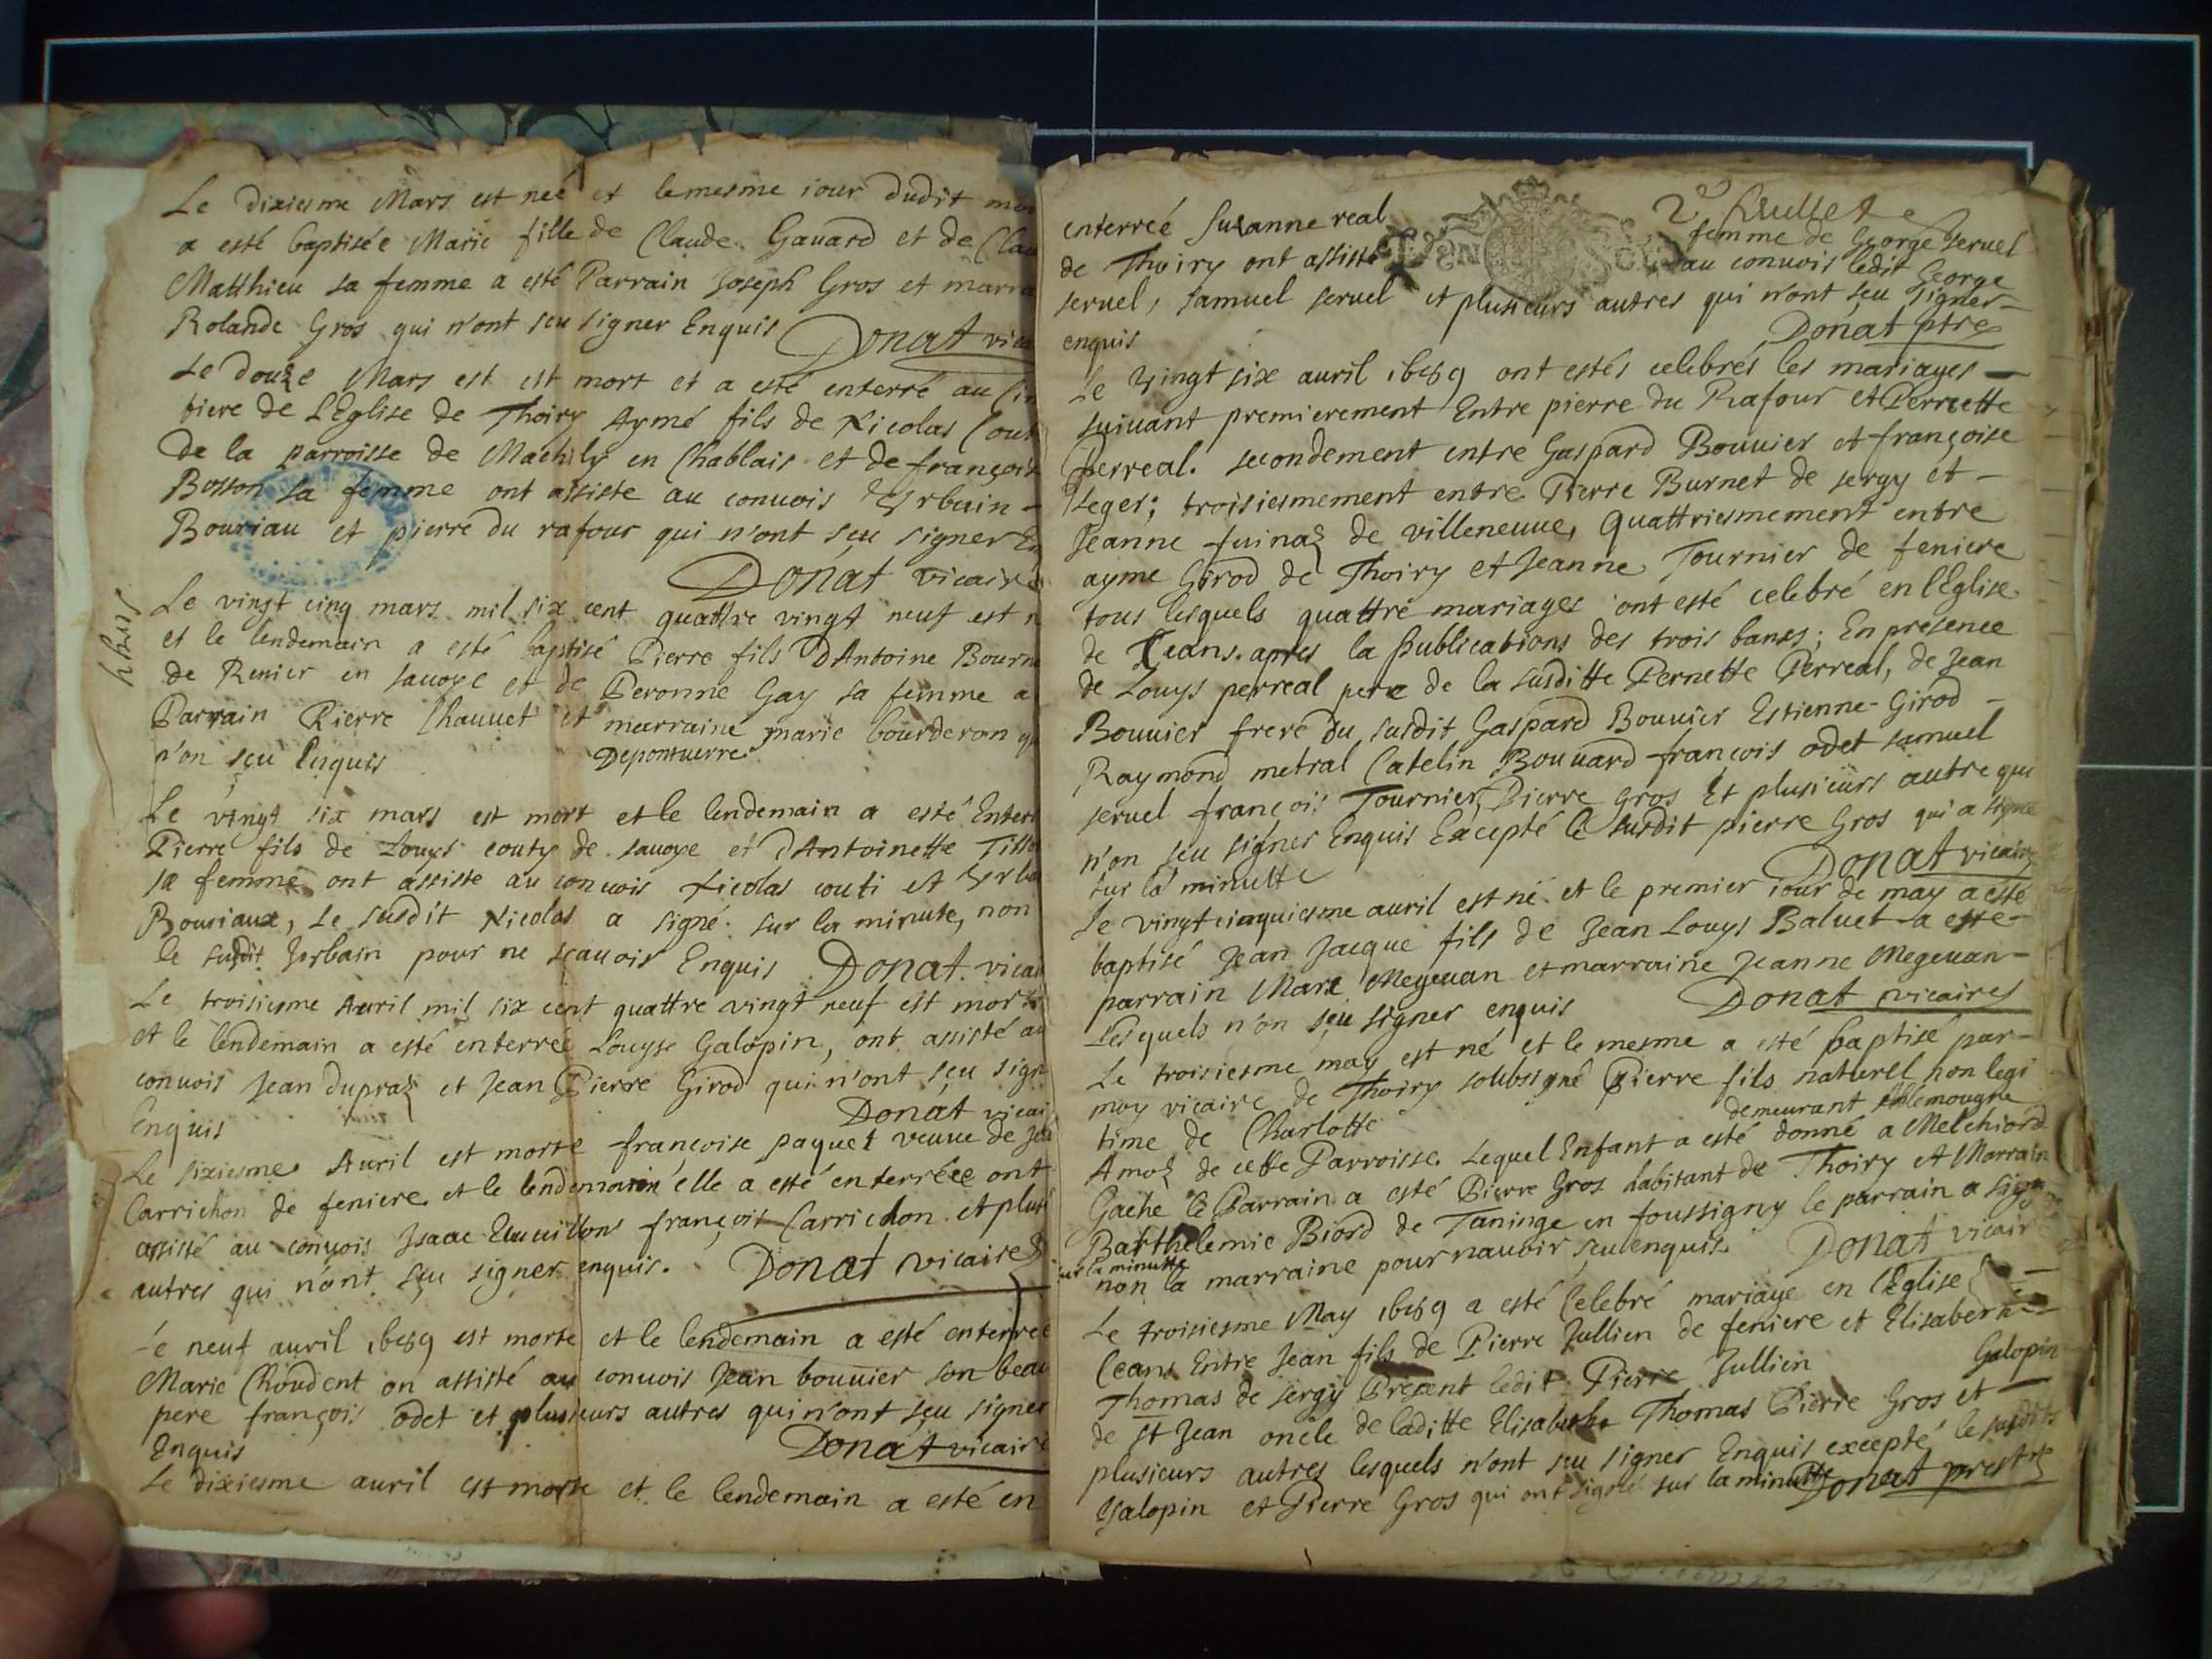 Le dixiesme Mars est neé et lemesme iour dudit
a esté baptisée Marie fille de Claude Gauard et de
Matthieu sa femme a esté Parrain Joseph Gros et
Rolande Gros qui n'ont seu signer Enquis Donat
Le douze Mars est est mort et a esté enterré au
tiere de L'Eglise de Thoiry Aymé fils de Nicolas
de la parroisse de Machily en Chablais et de françoise
Bosson sa femme ont assiste au conuois Vrbain
Bouriau et pierre du rafour qui n'ont seu signer
Donat vicaire
Le vingt cinq mars mil six cent quattre vingt neuf est
et le lendemain a esté baptisé Pierre fils D'Antoine
de Renier en sauoye et de Peronne Gay sa femme a
Parrain Pierre Chauuet et marraine marie bourderon
n'on seu Enquis
Le vingt six mars est mort et le lendemain a esté
Pierre fils de Louys couty de sauoye et D'Antoinette
sa femme ont assiste au conuois Nicolas couti et
Bouriaux, Le susdit Nicolas a signé sur la minute, non
le susdit Vrbain pour ne scauoir Enquis Donat
Le troisiesme Auril mil six cent quattre vingt neuf est morte
et le lendemain a esté enterreé Louyse Galopin, ont assisté au
conuois Jean dupraz et Jean Pierre Girod qui n'ont seu
Donat
Enquis
Le sixiesme Auril est morte françoise paquet veuue de
Carrichon de feniere et le lendemain elle a esté enterréee ont
assisté au conuois Isaac françois Carrichon et
autres qui n'ont seu signer enquis. Donat vicaire
neuf auril 1689 est morte et le lendemain a esté enterreé
Marie on assisté au conuois Jean bouuier son beau
pere françois odet et plusieurs autres qui n'ont seu signer
Enquis Donat vicaire
Le dixiesme auril est morte et le lendemain a esté en
enterreé Suzanne real femme de George seruel
de Thoiry ont assisté au conuois ledit George
seruel, samuel seruel et plusieurs autres qui n'ont seu signer
enquis Donat ptre
Le vingt six auril 1689 ont estés celebrés les mariages
suiuant premierement Entre pierre du Rafour et Pernette
Perreal. secondement entre Gaspard Bouuier et françoise
Leger; troisiesmement entre Pierre Burnet de sergy et
Jeanne fuinaz de villeneuue, Quattriesmement entre
ayme Girod de Thoiry et Jeanne Tournier de feniere
tous lesquels quattre mariages ont esté celebré en l'Eglise
de Ceans. apres la Publications des trois bancs; En presence
de Louys perreal pere de la susditte Pernette Perreal, de Jean
Bouuier frere du susdit Gaspard Bouuier Estienne Girod
Raymond metral Catelin Bouuard françois odet samuel
seruel françois Tournier, Pierre Gros Et plusieurs autre qui
n'on seu signer Enquis Excepté le susdit pierre Gros qui a signé
sur la minutte Donat vicaire
Le vingtcinquiesme auril est né et le premier iour de may a esté
baptisé Jean Jacque fils de Jean Louys Baluet a esté
parrain Marc Megeuan et marraine Jeanne Megeuan
Lesquels n'on seu signer enquis Donat vicaire
Le troisiesme may est né et le mesme a esté baptisé par
moy vicaire de Thoiry soubsigné Pierre fils naturel non legi
time de Charlotte demeurant
Amoz de cette Parroisse. Lequel Enfant a esté donné a Melchiord
Gache le Parrain a esté Pierre Gros habitant de Thoiry et Marrain
Barthelemie Biord de Taninge en foussigny le parrain a
sur la minutte
non la marraine pour n'auoir seu enquis. Donat
Le troisiesme May 1689 a esté Celebré mariage en l'Eglise
Ceans Entre Jean fils de Pierre Jullien de feniere et Elisabeth
Thomas de sergy Present ledit Pierre Jullien Galopin
de st Jean oncle de laditte Elisabethe Thomas Pierre Gros et
plusieurs autres lesquels n'ont seu signer Enquis excepté le susdits
Galopin et Pierre Gros qui ont signé sur la minutte Donat prestre